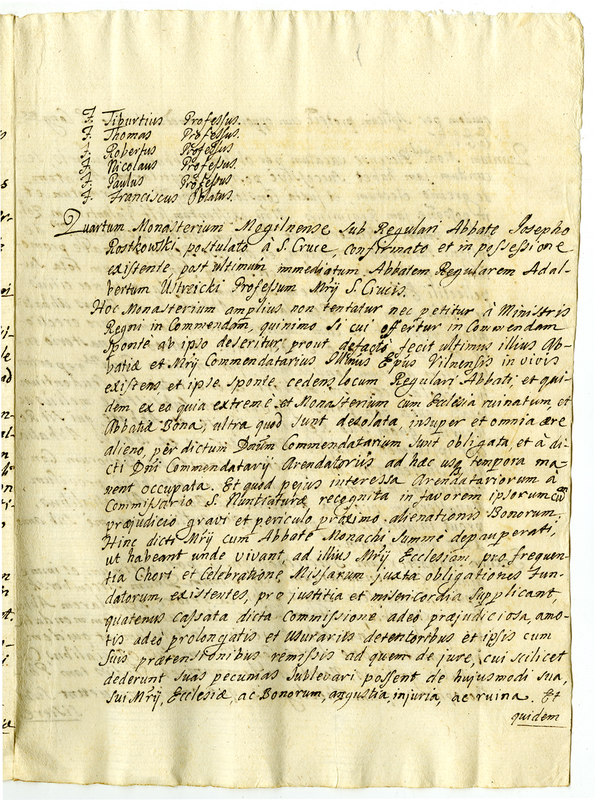 Tiburtius Professus.
Thomas Professus.
Robertus Professus
Nicolaus Professus.
Paulus Professus
Franciscus Oblatus.
Quartum Monasterium Mogilnense sub Regulari Abbate Josepho
Rosikowski postulato à S. Cruce, confirmato et in possessione
existente, post ultimum immediatum Abbatem Regularem Adal-
bertum Ustreicki Professum Mrÿ S. Crucis.
Hoc Monasterium amplius non tentatur nec petitur à Ministris
Regni in Commendam, quinimo si cui offertur in Commendam
sponte ab ipso deseritur prout defacto fecit ultimus illius Ab-
batiæ et Mrÿ Commendatarius Illmus Epus Vilnensis in vivis
existens, et ipse sponte cedens locum Regulari Abbati, et qui-
dem ex eo quia extremè et Monasterium cum Ecclesia ruinatum, et
Abbatiæ Bona, ultra quod sunt desolata, insuper et omnia ære
alieno, pèr dictum Dnum Commendatarium sunt obligata et à di-
cti Dni Commendatarÿ Arendatoriis ad hæc usq tempora ma-
nent occupata. Et quod pejus interessa Arendatariorum à
Commissario S. Nuntiaturæ recognita in favorem ipsorum cũ
præjudicio gravi et periculo proximo alienationis Bonorum.
Hinc dicti Mrÿ cum Abbate Monachi summè depauperati,
ut habeant unde vivant, ad illius Mrÿ Ecclesiam, pro frequen-
tia Chori et Celebratione Missarum juxta obligationes Fun-
datorum, existentes, pro justitia et misericordia supplicant
quatenus cassata dicta Commissione adeò præjudiciosa, amo-
tis adeò prolongatis et usurariis detentoribus et ipsis cum
suis prætensionibus remissis ad quem de jure, cui scilicet
dederunt suas pecunias sublevari possent de hujusmodi sua,
sui Mrÿ, Ecclesiæ, ac Bonorum, angustia, injuria, ac ruina. Et
quidem